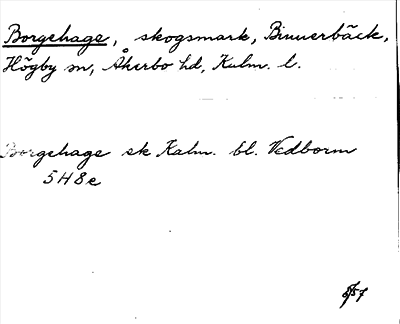 Borgehage, skogsmark, Binnerbäck,
Högby sn, Åkerbo hd, Kalm. l.
Borgehage sk Kalm. bl. Vedborm
5H8e